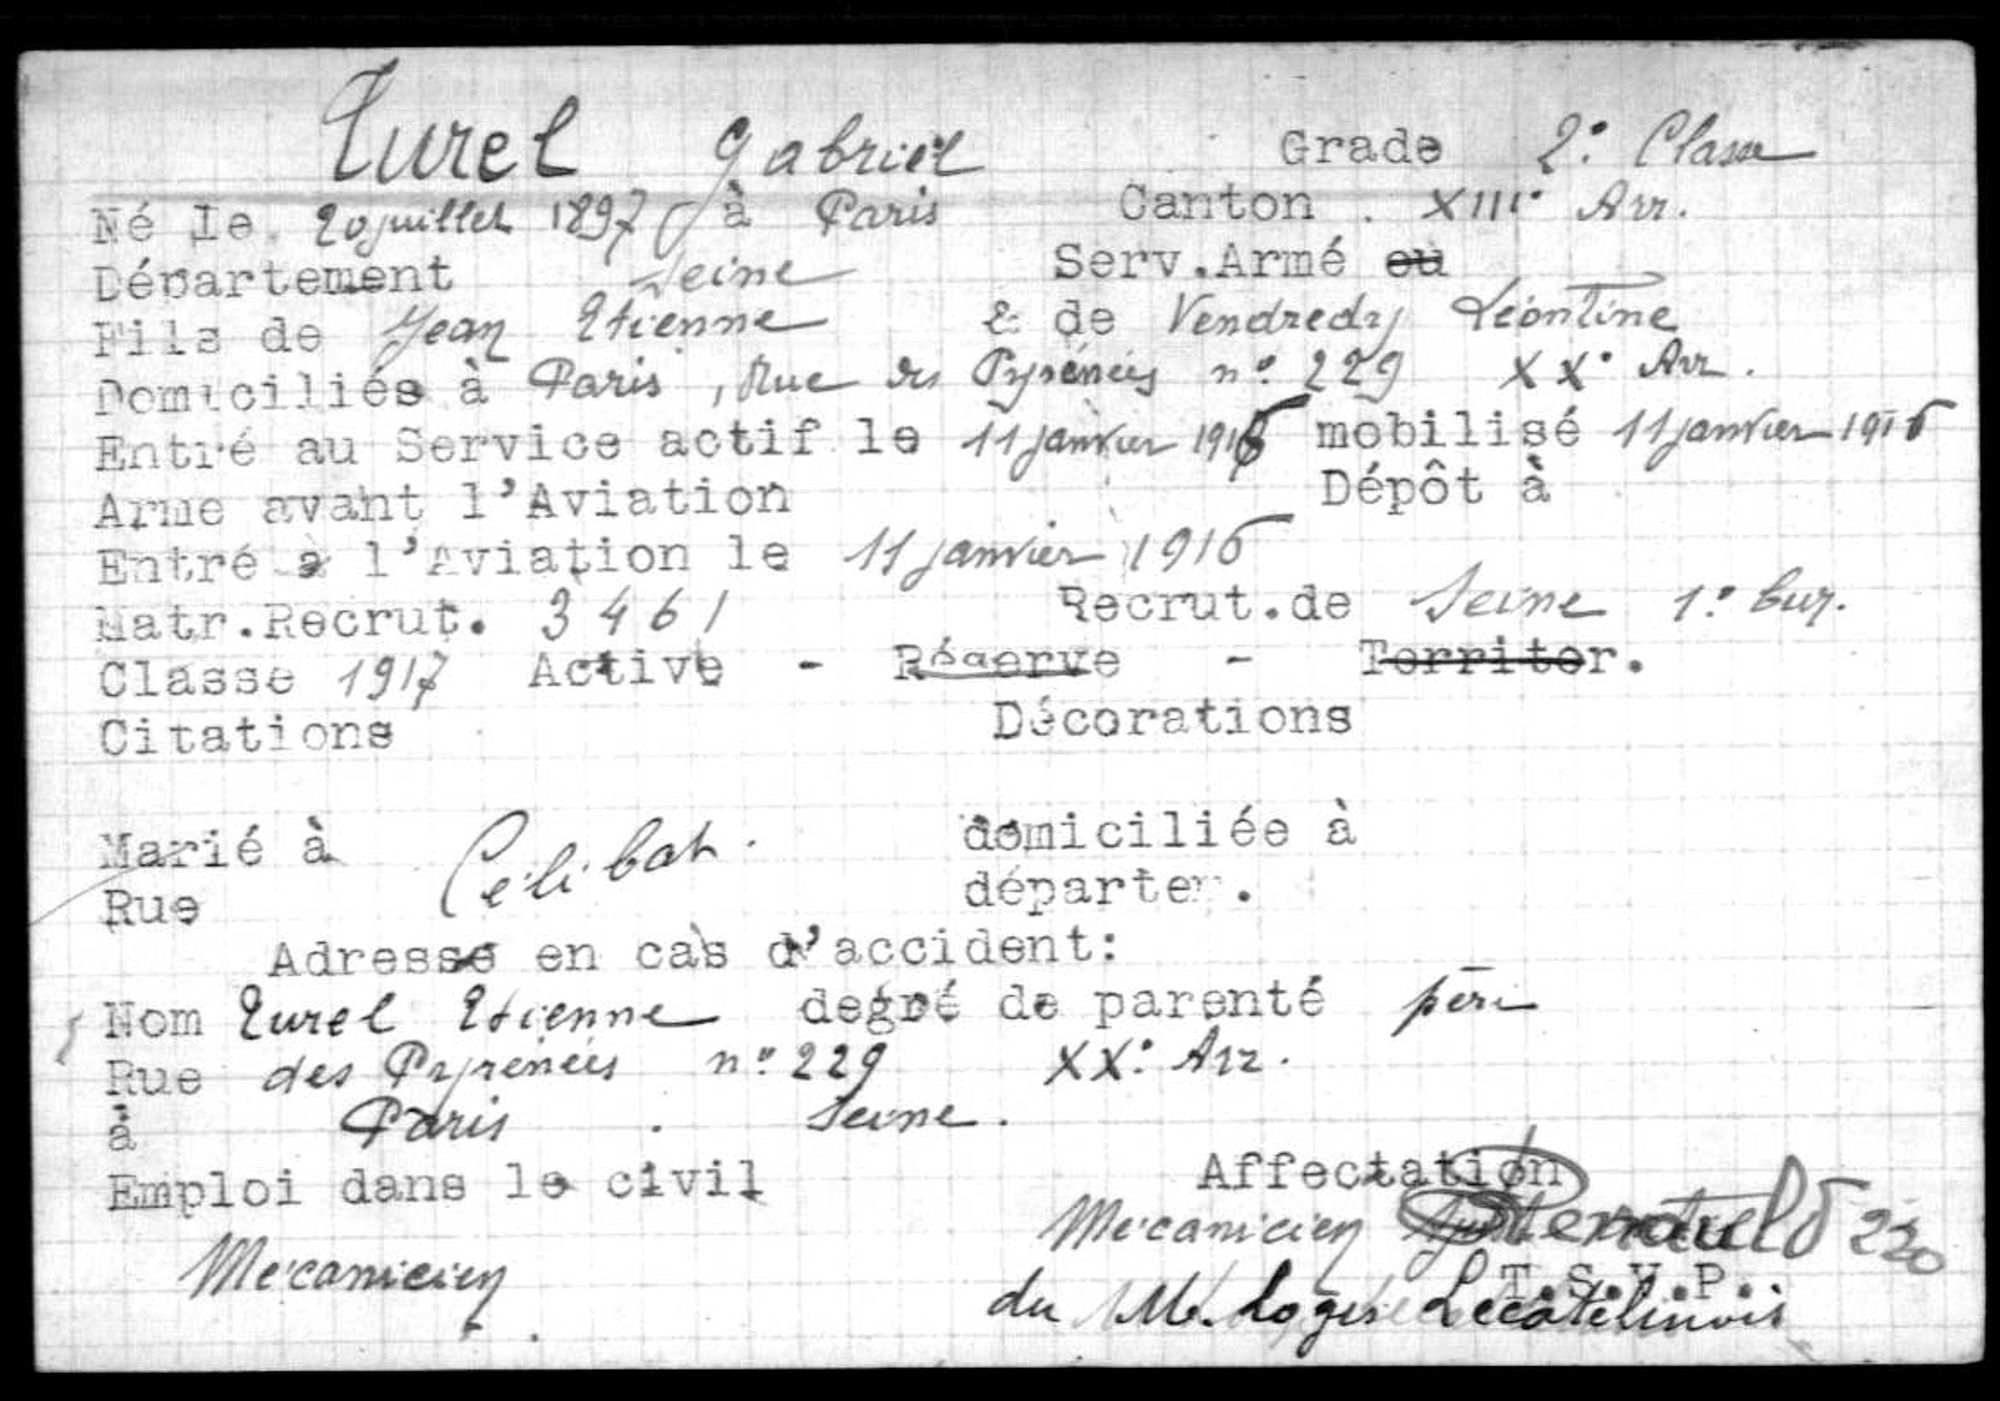 Turel Gabriel Grade 2e Classe
Né le 20 juillet 1897 à Paris Canton . XIIIe Arr.
Département Seine Serv.Armé ou
Fils de Jean Etienne & de Vendredy Léontine
Domiciliés à Paris, Rue des Pyrénées n° 229 XXe Arr.
Entré au Service actif le 11 janvier 1916 mobilisé 11 janvier 1916
Arme avant l'Aviation Dépôt à
Entré à l'Aviation le 11 janvier 1916
Matr.Recrut. 3461 Recrut.de Seine 1e bur.
Classe 1917 Active - Réserve - Territor.
Citations Décorations
Marié à Célibat. domiciliée à
Rue départem.
Adresse en cas d'accident:
Nom Turel Etienne degré de parenté père
Rue des Pyrénées n° 229 XXe Arr.
à Paris . Seine.
Emploi dans le civil Affectation
Mécanicien Mécanicien 220
T.S.V.P.
du M. Logis